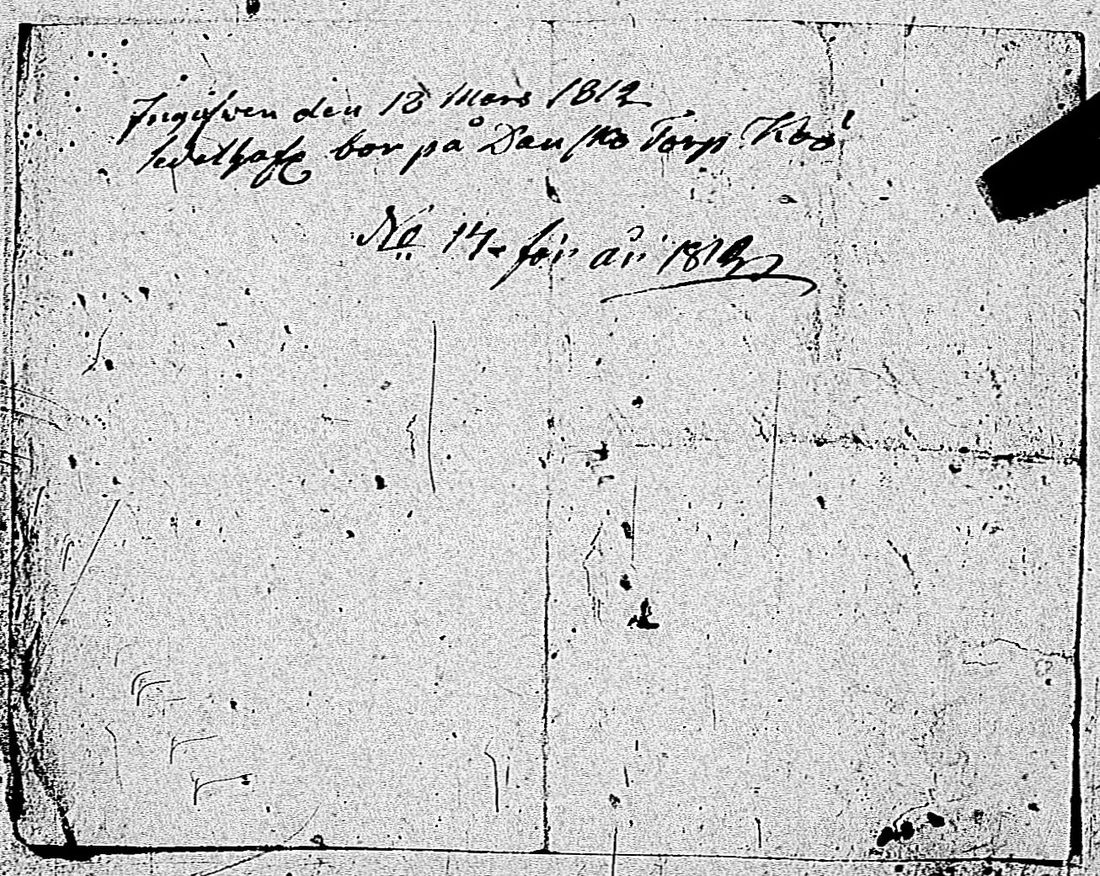 Ingifwen den 18 Mars 1812
bor på Danska Torp
No 14. för år 1812